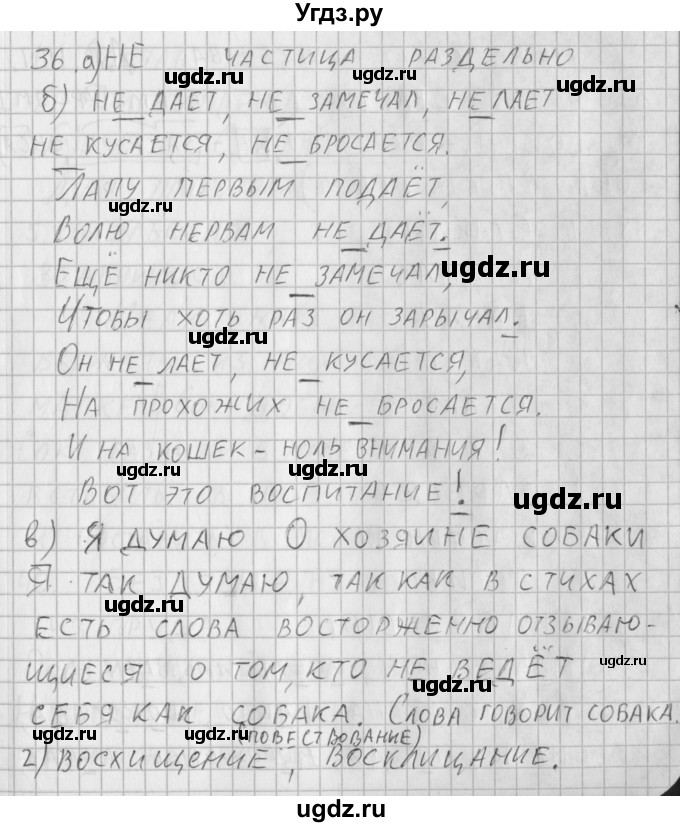 Угдз.ру
36 а) НЕ ЧАСТИЦА РАЗДЕЛЬНО
ugdz.ru ugdz.ru
б) НЕ ДАЕТ, НЕ ЗАМЕЧАЛ, НЕ ЛАЕТ
НЕ КУСАЕТСЯ, НЕ БРОСАЕТСЯ.
ЛАПУ ПЕРВЫМ ПОДАЁТ,
ugdz.ru
ВОЛЮ НЕРВАМ НЕ ДАЁТ.
ЕЩЁ НИКТО НЕ ЗАМЕЧАЛ,
ugdz.ru
ЧТОБЫ ХОТЬ РАЗ ОН ЗАРЫЧАЛ.
ugdz.ru
ОН НЕ ЛАЕТ, НЕ КУСАЕТСЯ,
НА ПРОХОЖИХ НЕ БРОСАЕТСЯ.
И НА КОШЕК - НОЛЬ ВНИМАНИЯ!
ugdz.ru ugdz.ru
ВОТ ЭТО ВОСПИТАНИЕ!
ugdz.ru
в) Я ДУМАЮ О ХОЗЯИНЕ СОБАКИ
Я ТАК ДУМАЮ, ТАК КАК В СТИХАХ
ugdz.ru
ЕСТЬ СЛОВА ВОСТОРЖЕННО ОТЗЫВАЮ-
ЩИЕСЯ О ТОМ, КТО НЕ ВЕДЁТ
ugdz.ru
СЕБЯ КАК СОБАКА. СЛОВА ГОВОРИТ СОБАКА.
ugdz.ru ugdz.ru ugdz.ru
(ПОВЕСТВОВАНИЕ)
г) ВОСХИЩЕНИЕ, ВОСКЛИЦАНИЕ.
ugdz.ru